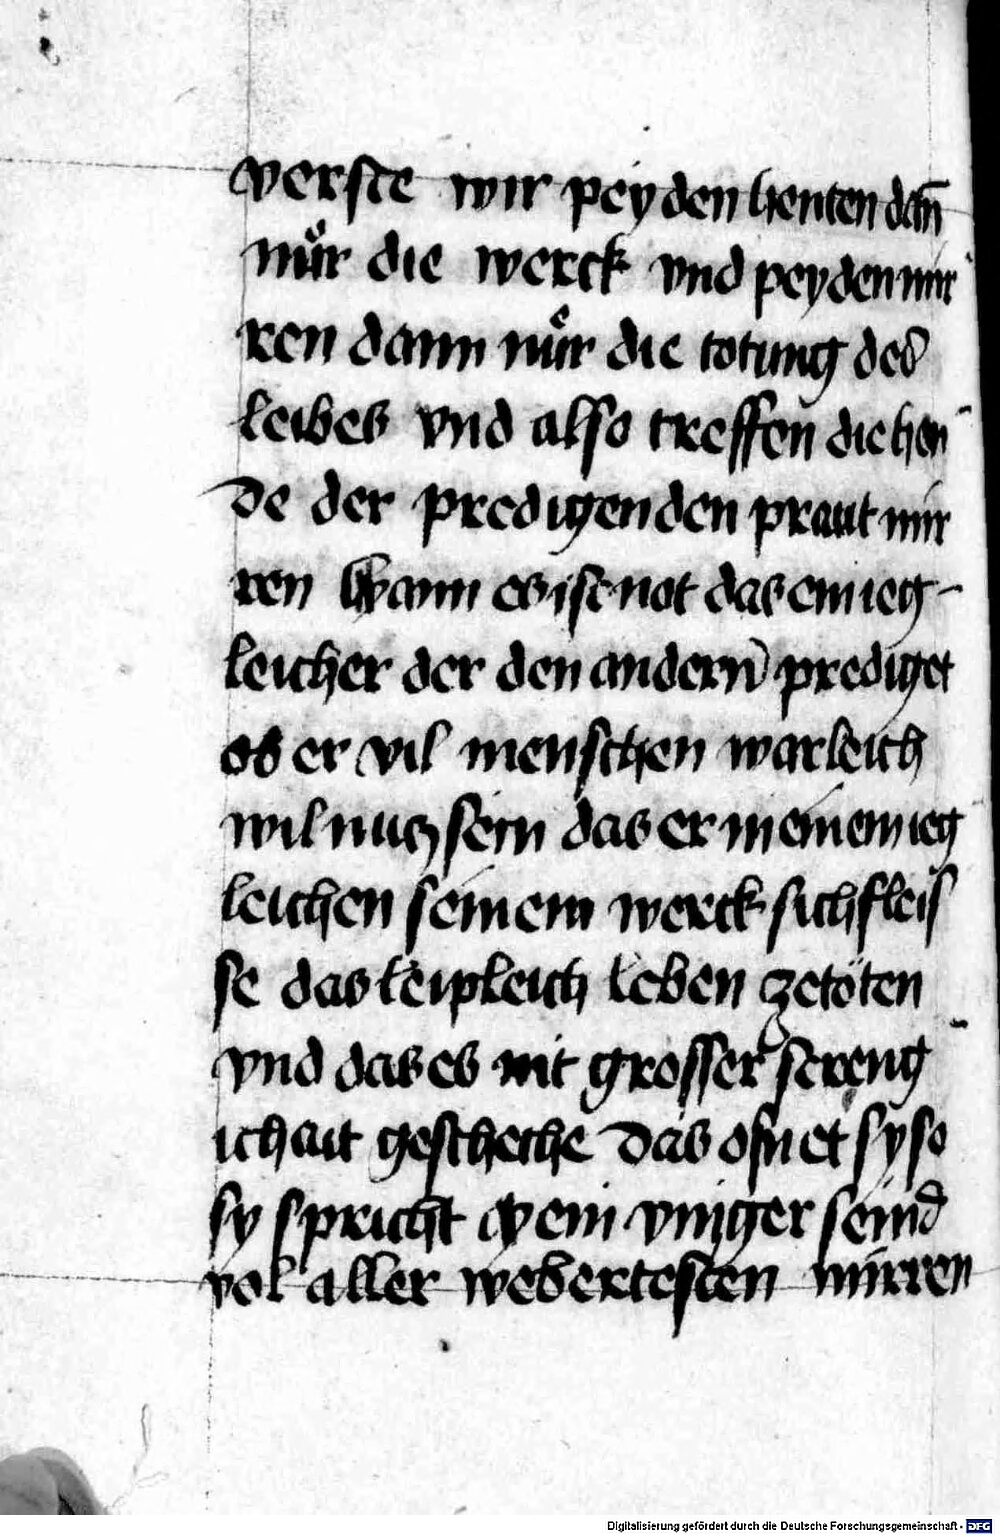 verste wir pey den henten dañ
nuͤr die werck vnd pey den mir
ren dann nuͤr die totung des
leibes vnd also treffen die hen
de der predigenden praut mir
ren Wann es ist not das ein ieg-
leicher der den andern prediget
ob er vil menschen warleich
wil nutz sein das er in einem ieg
leichen seinem werck sich fleis
se das leipleich leben zetöten
vnd das es mit grosser streng
ichait gescheche Das ofnet sy so
sy spricht Mein vinger seind
vol aller webertesten mirren
Digitalisierung gefördert durch die Deutsche Forschungsgemeinschaft - DFG